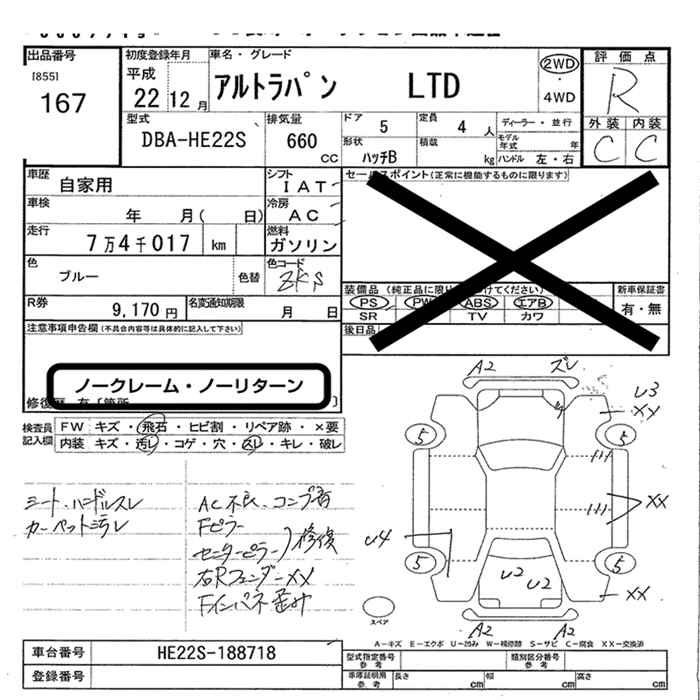 出品番号
[855]
167
初度登録年月
平成
22 12 月
車名・グレード
アルトラパン LTD
2WD
4WD
評価点
R
外装 内装
C C
型式
DBA-HE22S
排気量
660 CC
ドア 5
定員 4 人
形状 ハッチB
積載 kg
ディーラー・並行
モデル年式 年
ハンドル 左・右
車歴
自家用
シフト
IAT
車検
年 月( 日)
冷房
AC
走行
7万4千017 km
燃料
ガソリン
色
ブルー
色替
色コード
ZKS
R券
9,170 円
名変通知期限
月 日
セールスポイント(正常に機能するものに限ります)
装備品 (純正品に限り
けてください)
PS PW ABS エアB
SR TV カワ
新車保証書
有・無
後日品
注意事項申告欄(不具合内容等は具体的に記入して下さい)
ノークレーム・ノーリターン
検査員記入欄
FW キズ・飛石・ヒビ割・リペア跡・×要
内装 キズ・汚レ・コゲ・穴・スレ・キレ・破レ
シート・ハンドルスレ
カーペット汚レ
AC不良 コンプ音
Fピラー
センターピラー)修復
右Rフェンダー XX
Fインパネ歪み
A2 ズレ
U3
XX
5 5
XX
U4
5 5
U2 U2
XX
A2 A2
スペア
A-キズ E-エクボ U-凹み W-補修跡 S-サビ C-腐食 XX-交換済
車台番号 HE22S-188718
登録番号
型式指定番号 参考
類別区分番号 参考
車庫証明用 参考
長さ cm 幅 cm 高さ cm